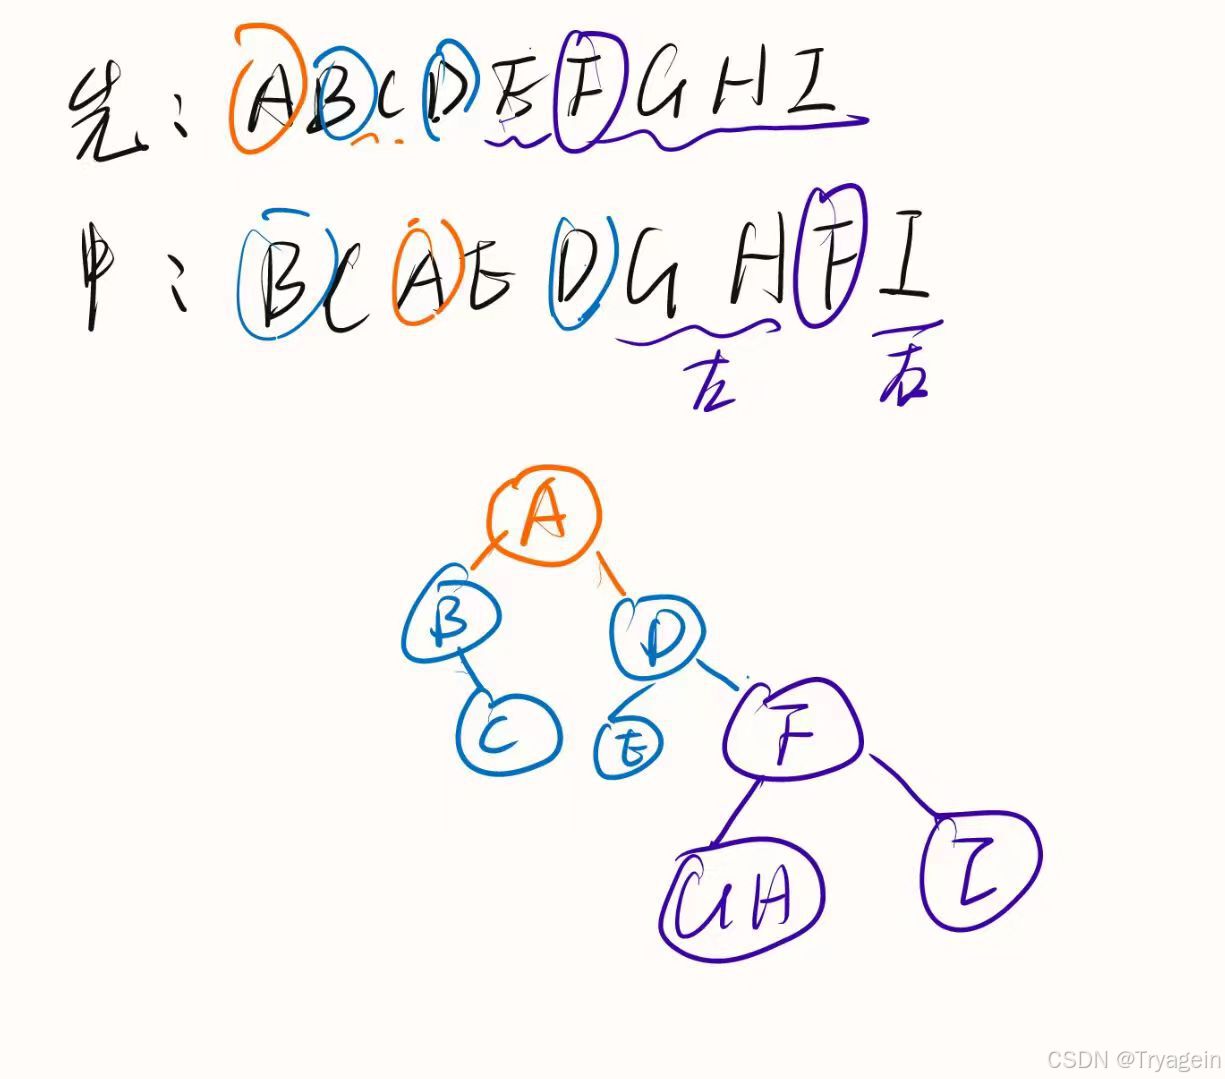 先: A B C D E F G H I
中: B C A E D G H F I
左 右
A
B D
C E F
G H I
CSDN @Tryagein